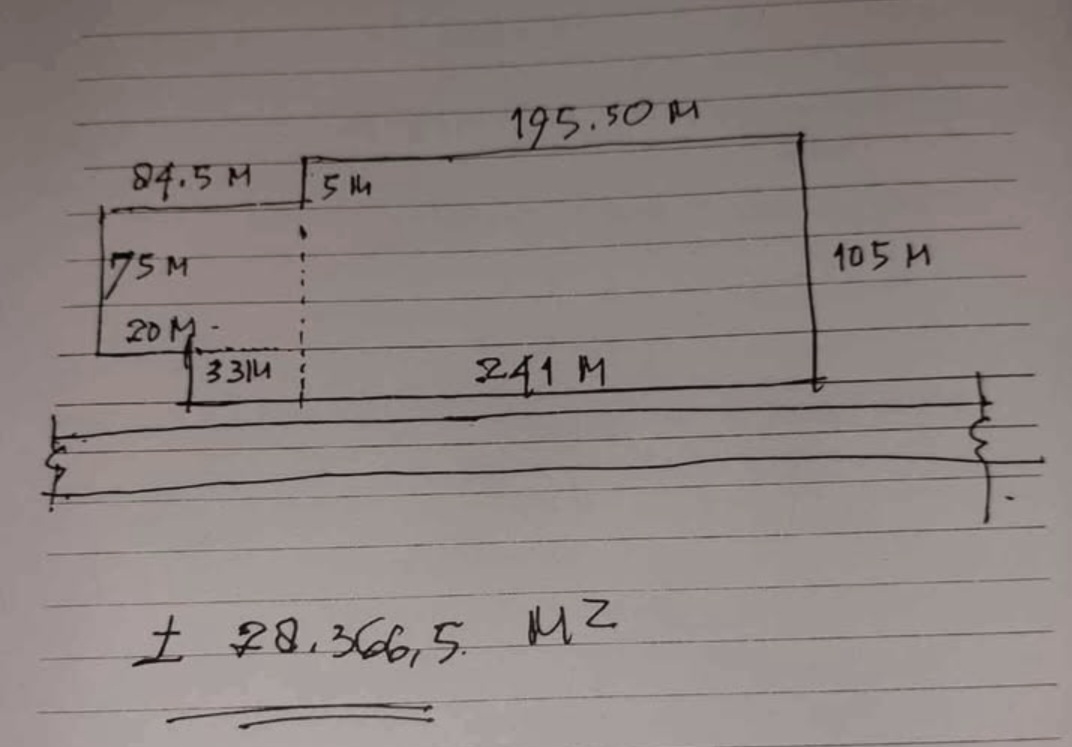 195.50 M
84.5 M
5 M
75 M
105 M
20 M
33M
241 M
± 28.366,5. M2